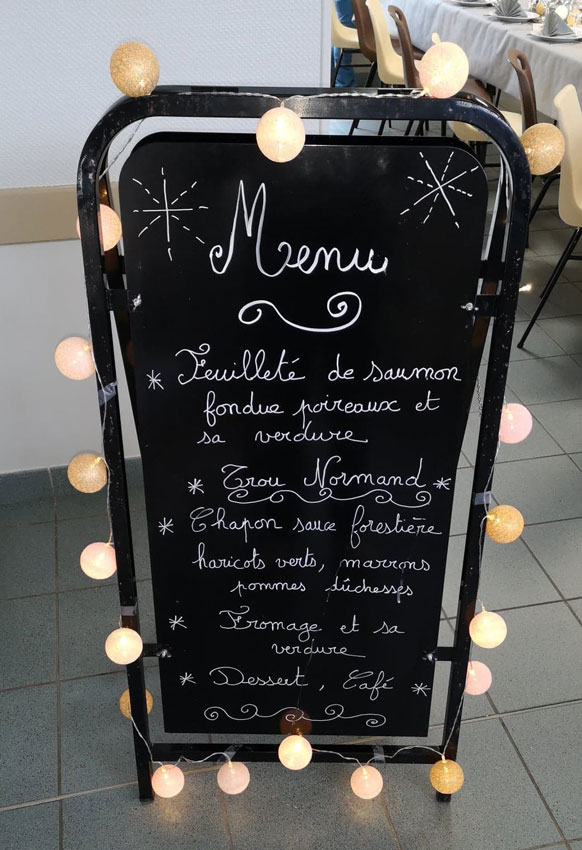 Menu
Feuilleté de saumon
fondue poireaux et
sa verdure
Trou Normand
Chapon sauce forestière
haricots verts, marrons
pommes dûchesses
Fromage et sa
verdure
Dessert, Café